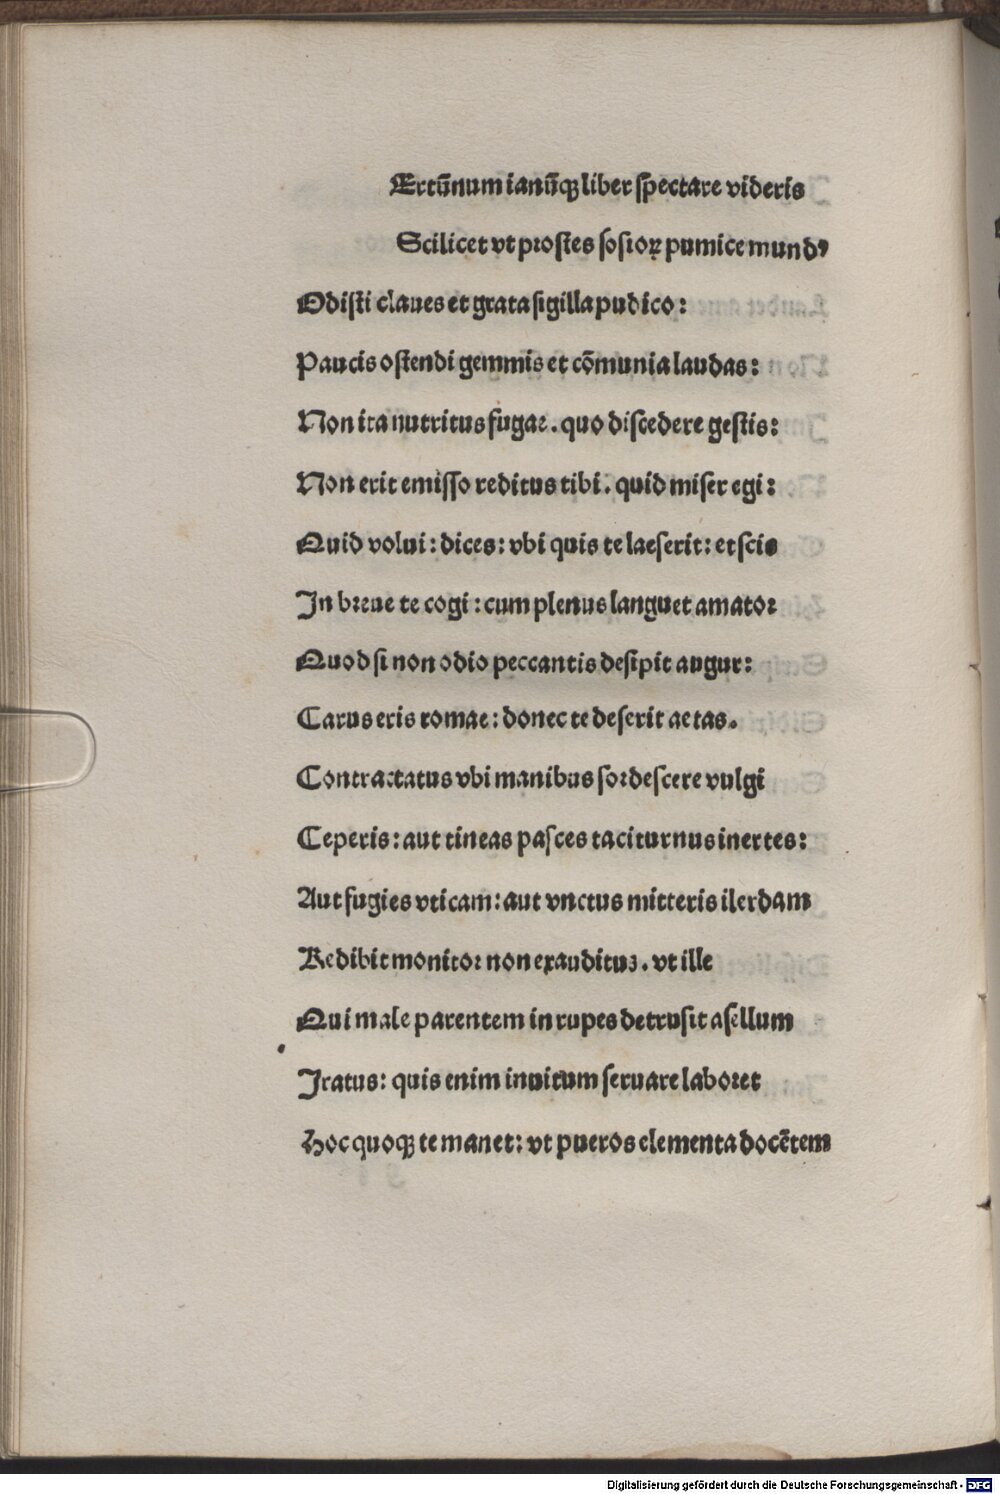 Ertūnum ianūqꝫ liber spectare videris
Scilicet vt prostes sosioꝝ pumice mundꝰ
Odisti claues et grata sigilla pudico:
Paucis ostendi gemmis et cōmunia laudas:
Non ita nutritus fugar. quo discedere gestis:
Non erit emisso reditus tibi. quid miser egi:
Quid volui: dices: vbi quis te laeserit: et scis
In breue te cogi: cum plenus languet amator
Quod si non odio peccantis desipit augur:
Carus eris romae: donec te deserit aetas.
Contractatus vbi manibus sordescere vulgi
Ceperis: aut tineas pasces taciturnus inertes:
Aut fugies vticam: aut vnctus mitteris ilerdam
Redibit monitor non exauditus. vt ille
Qui male parentem in rupes detrusit asellum
Iratus: quis enim inuitum seruare laboret
Hoc quoqꝫ te manet: vt pueros elementa docētem
Digitalisierung gefördert durch die Deutsche Forschungsgemeinschaft - DFG